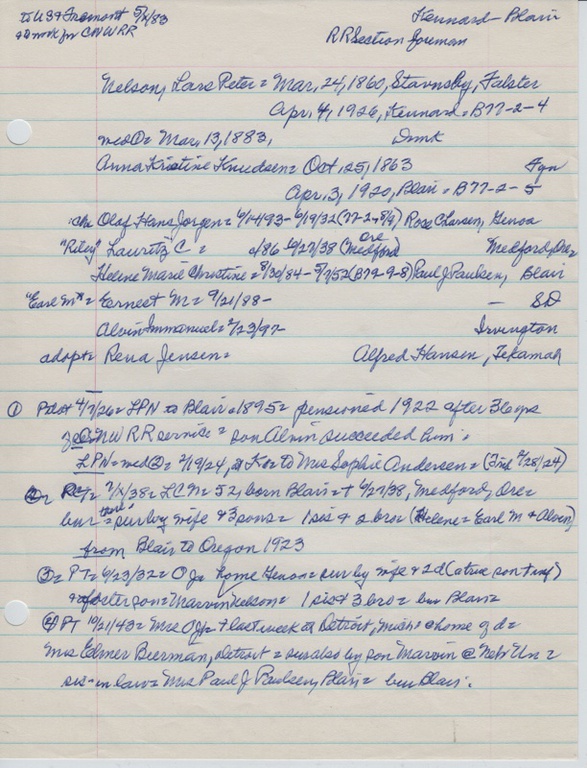 to USA Fremont 5/x/83
to work for CNWRR
Kennard - Blair
RR Section foreman
Nelson, Lars Peter = Mar, 24, 1860, Stavnsby, Falster
Apr, 4, 1926, Kennard = B77-2-4
med① = Mar, 13, 1883, Dmk
Anna Kristine Knudsen = Oct, 25, 1863 Fyn
Apr, 3, 1920, Blair = B77-2-5
: ch Olaf Hans Jorgen = 6/14/93 - 6/19/32 (77-2-8/9) Rose Larsen, Genoa
"Riley" Lauritz C = /86 - 6/27/38 (Medford Ore) Medford, Ore
Helene Marie Christine = 8/30/84 - 5/7/52 (B79-9-8) Paul J Paulsen, Blair
"Earl M" = Earnest M = 9/21/88 - - SD
Alvin Immanuel = 2/23/97 - Irvington
adopt = Rena Jensen = Alfred Hansen, Tekamah
① Pilot 4/7/26 = LPN to Blair 1895 = pensioned 1922 after 36 yrs
NW RR service = son Alvin succeeded him :
LPN = med② = 2/19/24, at to Mrs Sophie Andersen = ( 2/28/24)
② = 7/x/38 = LCN = 52, born Blair = † 6/27/38, Medford, Ore =
bur there = surv by wife & 3 sons = 1 sis & 2 bro (Helene = Earl M & Alvin)
from Blair to Oregon 1923
③ = PT = 6/23/32 = OJ = home Genoa = surv by wife & 2d (a true son † inf)
& foster son = Marvin Nelson = 1 sis & 3 bro = bur Blair =
④ PT 10/21/43 = Mrs OJ = † last week @ Detroit, Mich = @ home of d =
Mrs Elmer Bierman, Detroit = surv also by son Marvin @ Nebr Un =
sis-in-law = Mrs Paul J Paulsen, Blair = bur Blair :